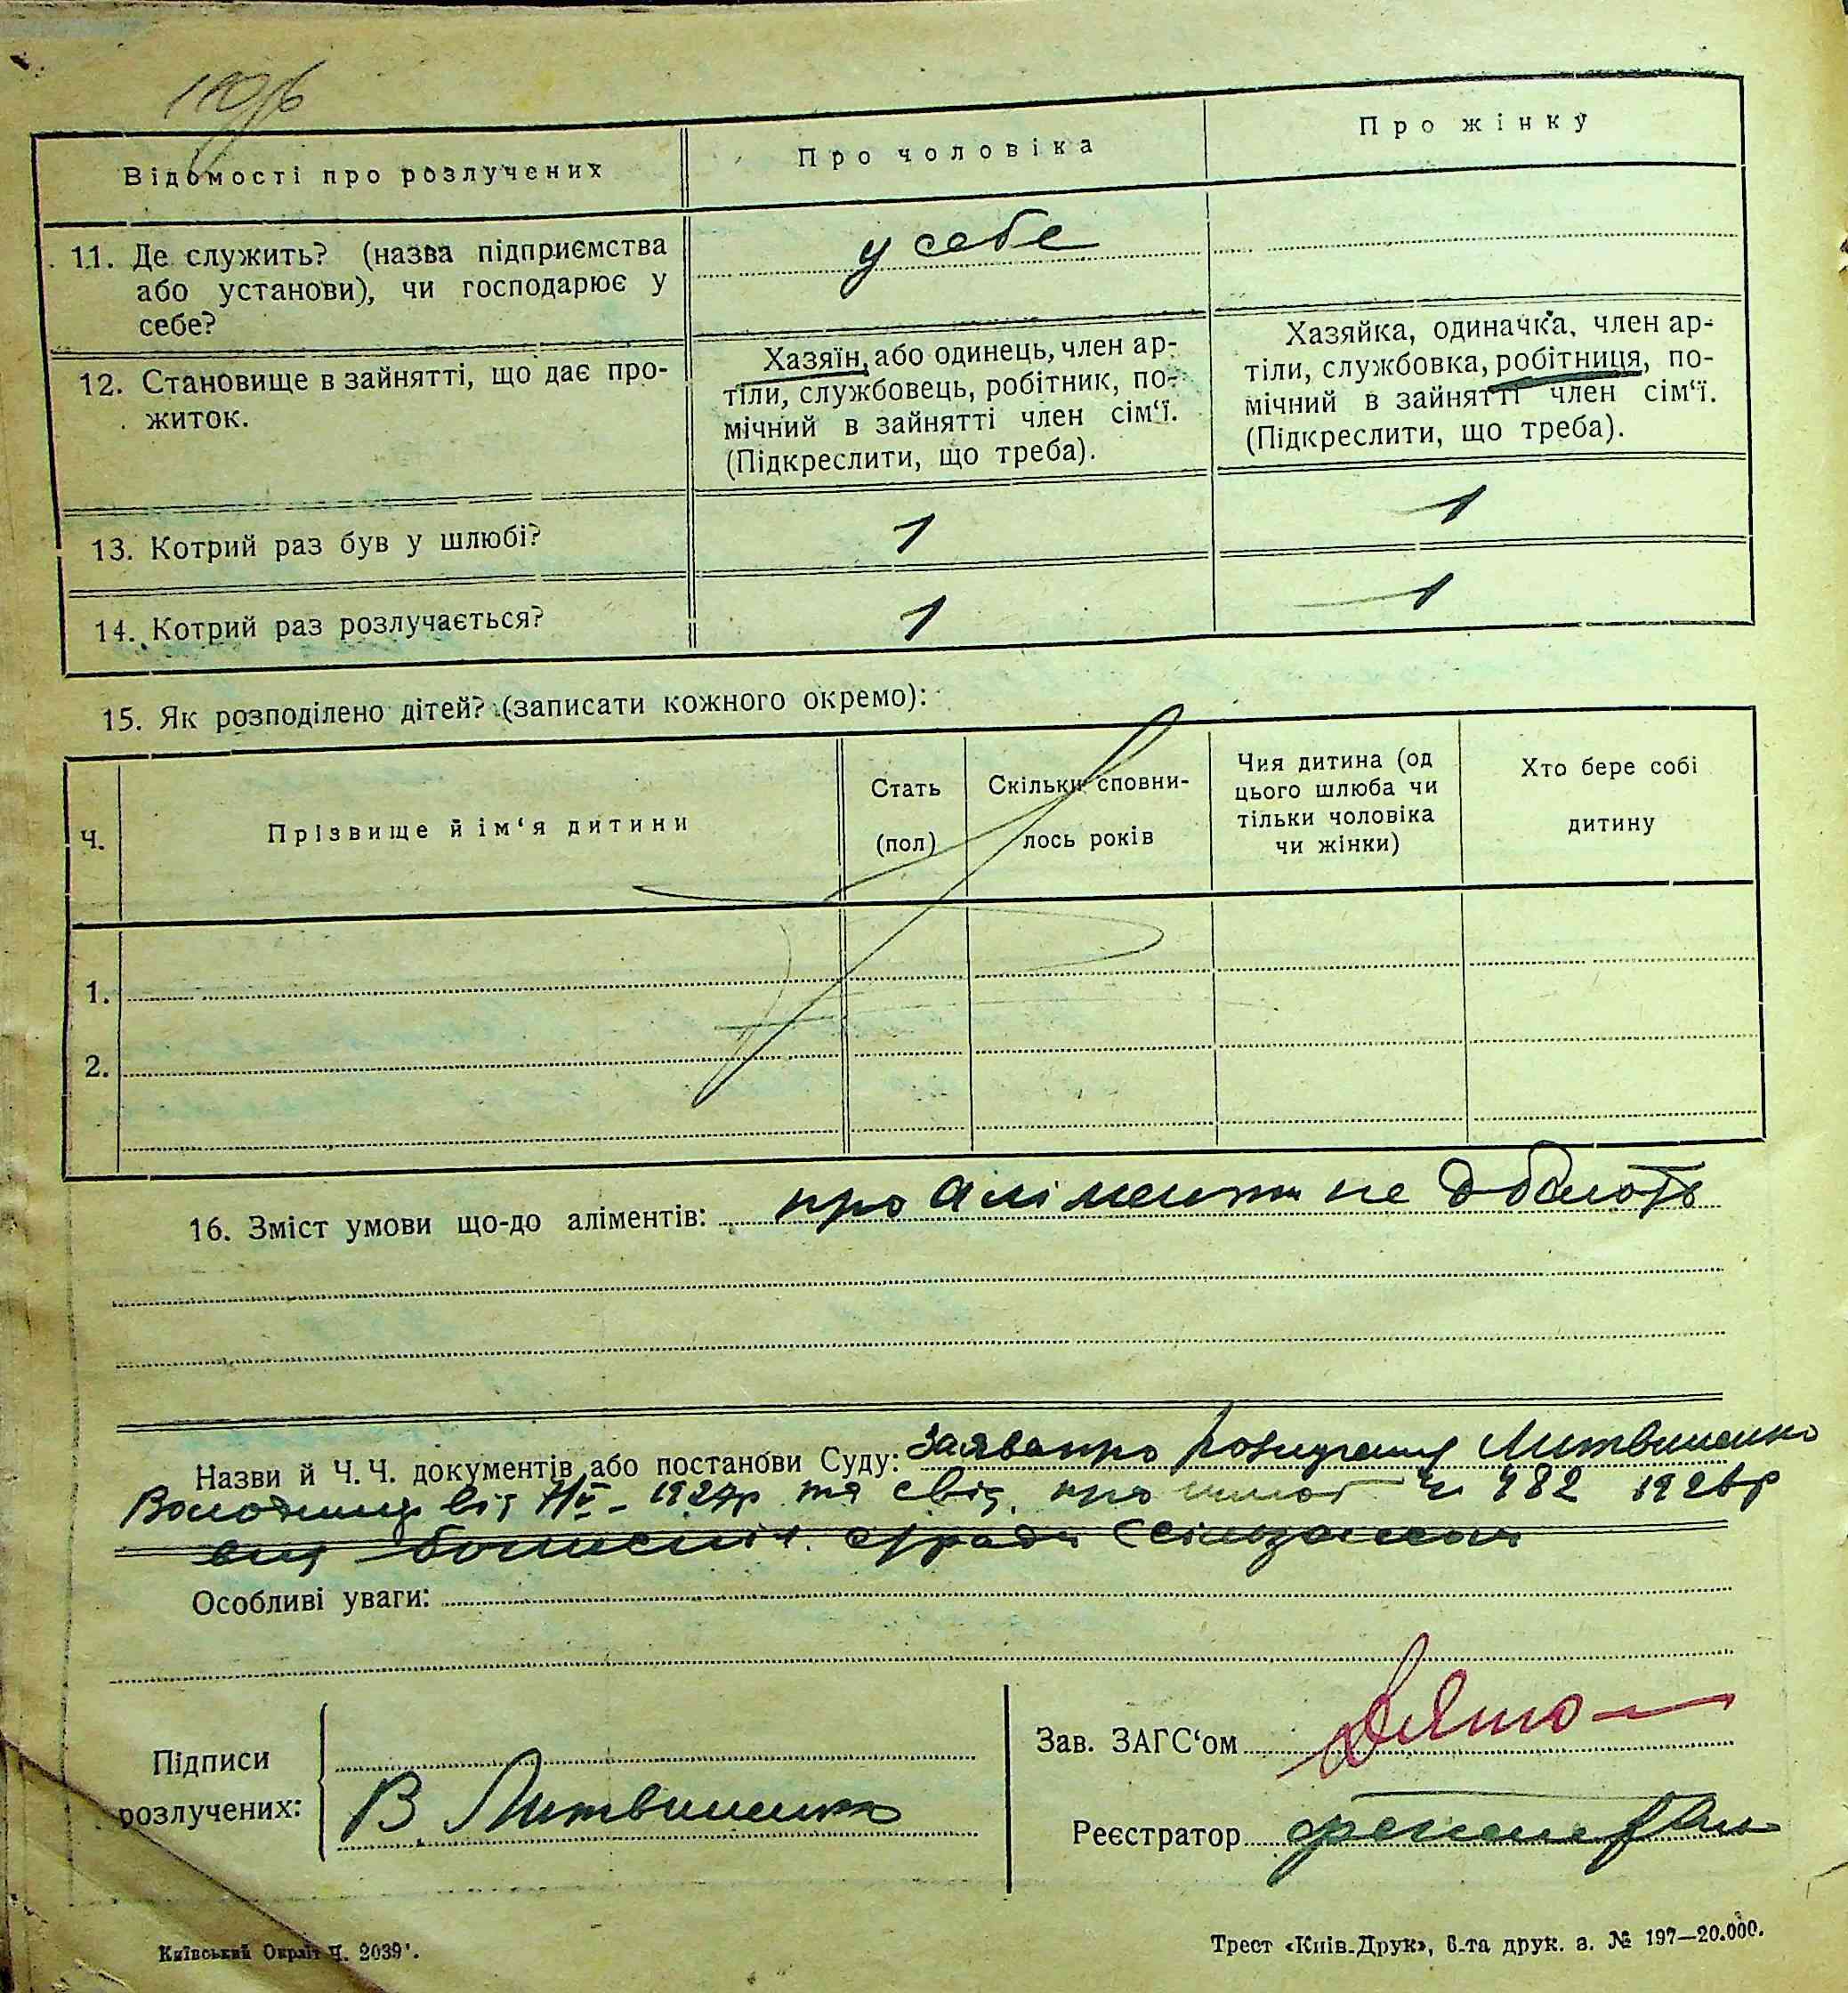 Відомості про розлучених
Про чоловіка
Про жінку
11. Де служить? (назва підприємства
або установи), чи господарює у
себе?
у себе
12. Становище в зайнятті, що дає про-
житок.
Хазяїн, або одинець, член ар-
тіли, службовець, робітник, по-
мічний в зайнятті член сім‘ї.
(Підкреслити, що треба).
Хазяйка, одиначка, член ар-
тіли, службовка, робітниця, по-
мічний в зайнятті член сім‘ї.
(Підкреслити, що треба).
13. Котрий раз був у шлюбі?
1
1
14. Котрий раз розлучається?
1
1
15. Як розподілено дітей? (записати кожного окремо):
Ч.
Прізвище й ім‘я дитини
Стать
(пол)
Скільки сповни-
лось років
Чия дитина (од
цього шлюба чи
тільки чоловіка
чи жінки)
Хто бере собі
дитину
1.
2.
16. Зміст умови що-до аліментів: про аліменти не дбають
Назви й Ч. Ч. документів або постанови Суду: Заява про розлучення Литвиненко
від та свід. про шлюб ч 482 1926 р
Особливі уваги:
Підписи
розлучених:
В. Литвиненко
Зав. ЗАГС‘ом
Реєстратор
Київський Окрліт Ч. 2039.
Трест «Київ-Друк», 6-та друк. з. № 197—20.000.